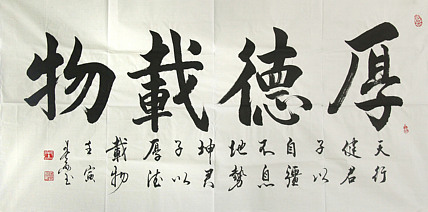 厚德載物
天行
健君
子以
自疆
不息
地勢
坤君
子以
厚德
載物
壬寅